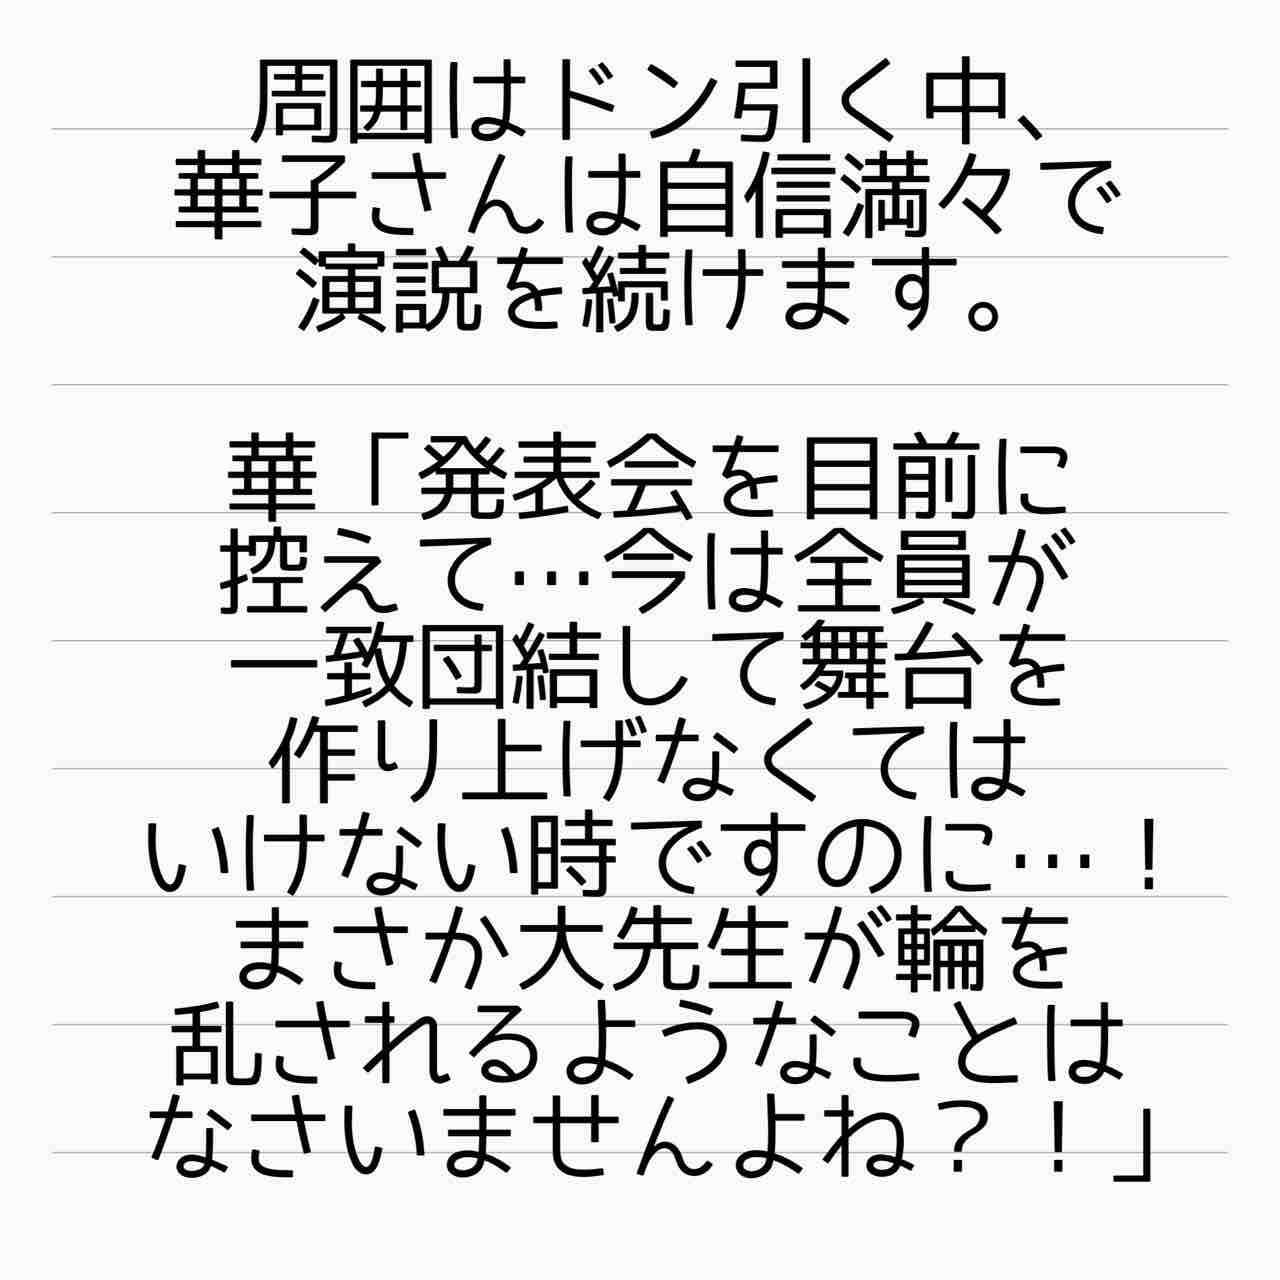 周囲はドン引く中、
華子さんは自信満々で
演説を続けます。
華「発表会を目前に
控えて…今は全員が
一致団結して舞台を
作り上げなくては
いけない時ですのに…！
まさか大先生が輪を
乱されるようなことは
なさいませんよね？！」